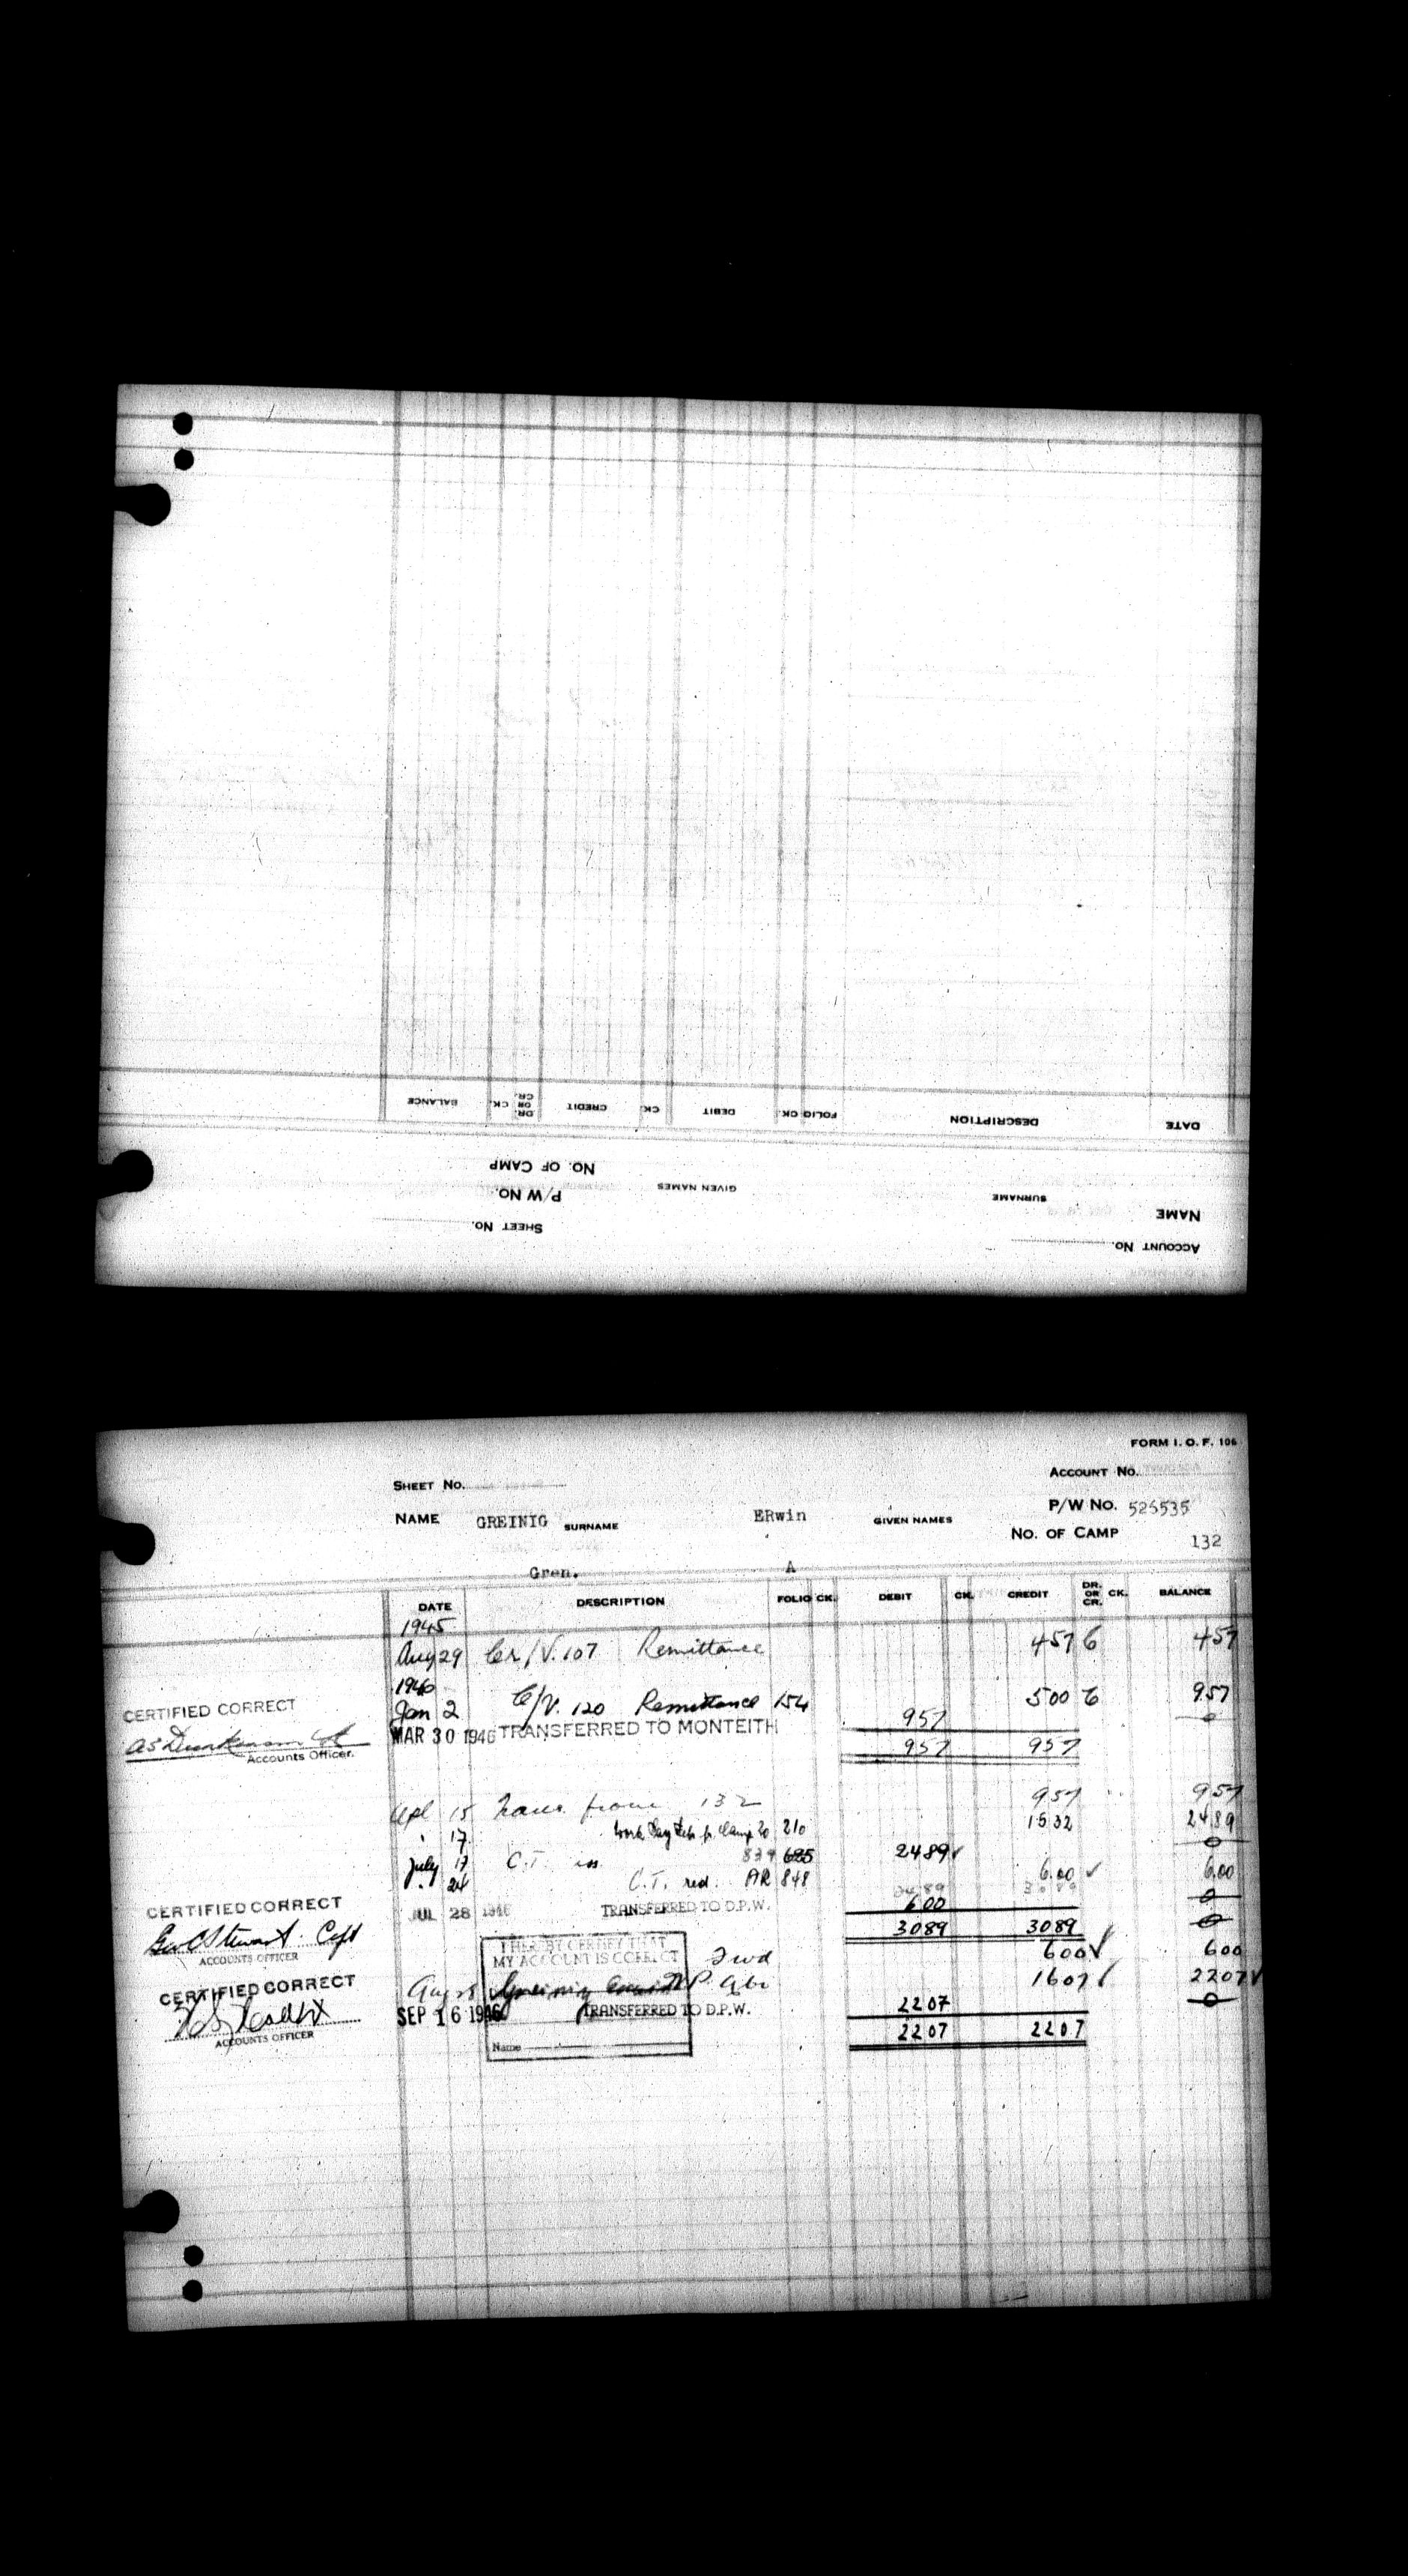 BALANCE CK. DR. OR CR. CREDIT CK. DEBIT CK. FOLIO DESCRIPTION DATE
NO. OF CAMP
P/W NO. GIVEN NAMES SURNAME NAME
SHEET NO. ACCOUNT NO.
FORM I. O. F. 106
SHEET NO. ACCOUNT NO.
NAME GREINIG SURNAME ERwin GIVEN NAMES P/W NO. 526535
NO. OF CAMP 132
Gren. A
DATE DESCRIPTION FOLIO CK. DEBIT CK. CREDIT DR. OR CR. CK. BALANCE
1945
Aug 29 Cr/V. 107 Remittance 457 457
1946
Jan 2 C/V. 120 Remittance 154 500 957
CERTIFIED CORRECT
MAR 30 1946 TRANSFERRED TO MONTEITH 957 0
Accounts Officer. 957 957
Apl 15 Trans. from 132 957 957
17 Work Pay fr. Camp 20 210 1532 2489
July 17 C.T. iss 839 685 2489 ✓ 0
24 C.T. red. AR 848 6.00 ✓ 6.00
CERTIFIED CORRECT
JUL 28 1946 TRANSFERRED TO D.P.W. 600 0
Geo C Stewart. Capt 3089 3089 0
ACCOUNTS OFFICER
I HEREBY CERTIFY THAT
MY ACCOUNT IS CORRECT Fwd 600 ✓ 600
CERTIFIED CORRECT
Aug 1607 ✓ 2207 ✓
SEP 16 1946 TRANSFERRED TO D.P.W. 2207 0
ACCOUNTS OFFICER
Name 2207 2207